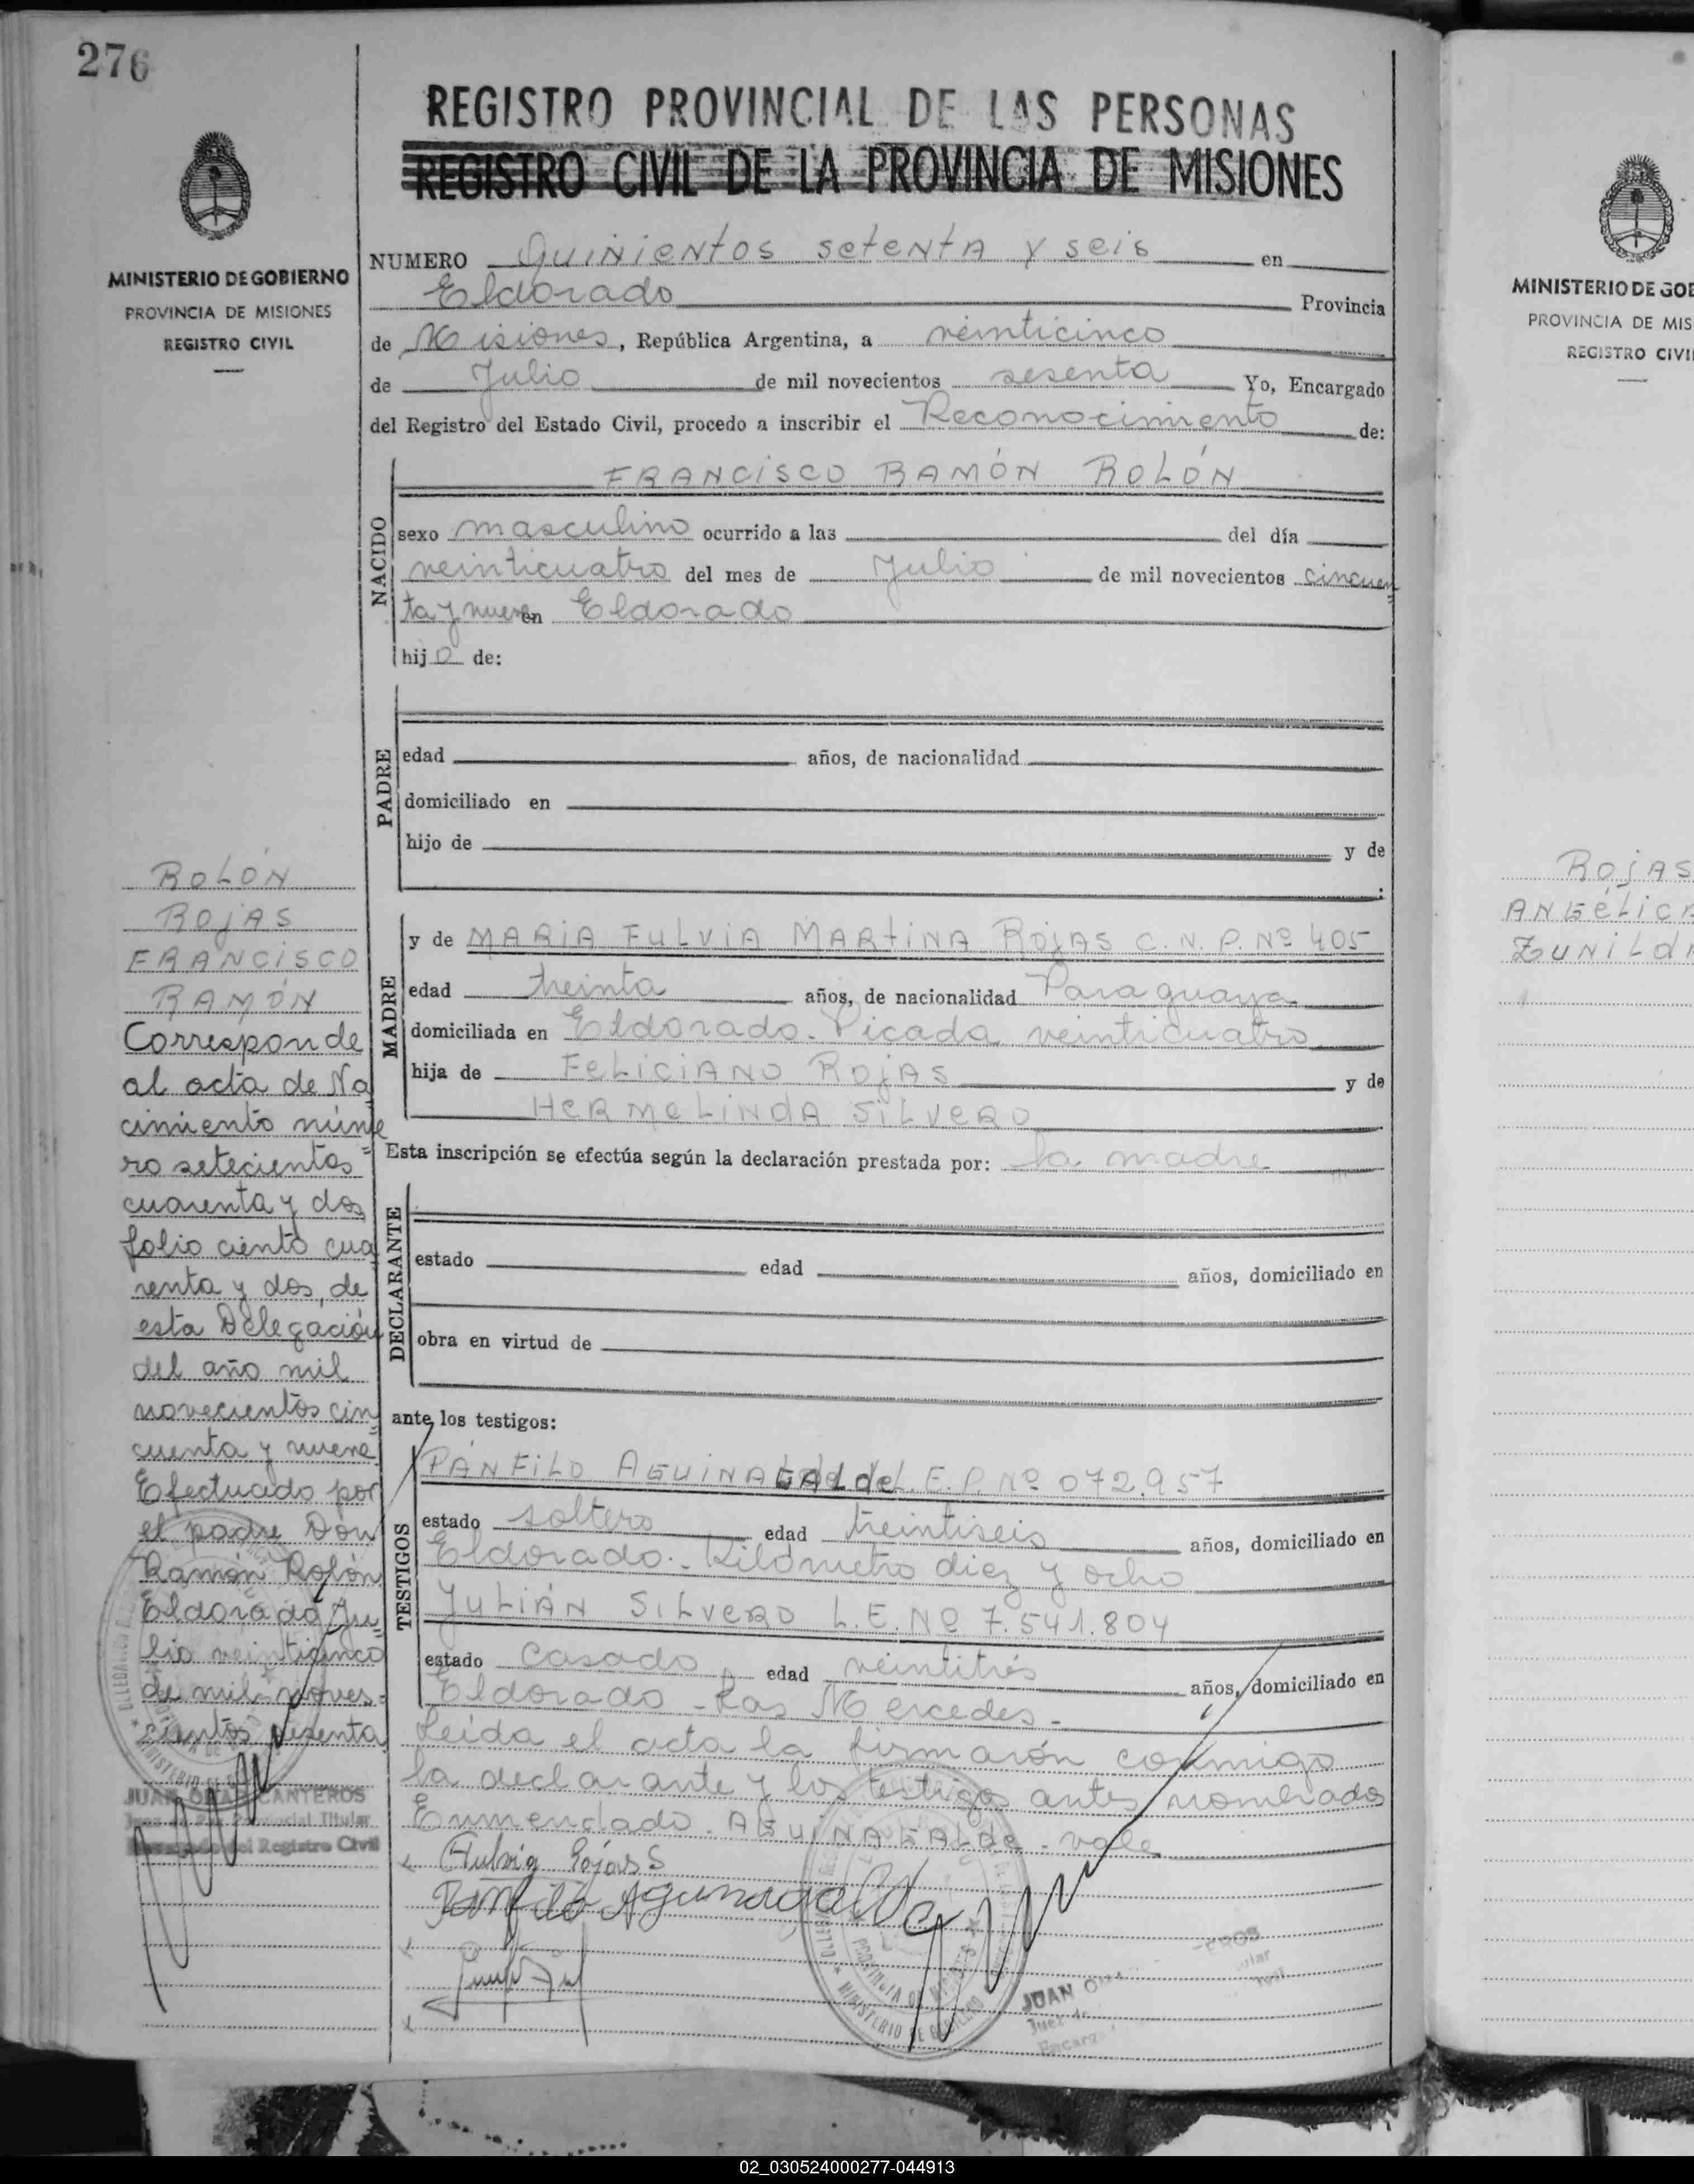 276
REGISTRO PROVINCIAL DE LAS PERSONAS
REGISTRO CIVIL DE LA PROVINCIA DE MISIONES
MINISTERIO DE GOBIERNO
PROVINCIA DE MISIONES
REGISTRO CIVIL
NUMERO Quinientos setenta y seis en
Eldorado Provincia
de Misiones, República Argentina, a veinticinco
de Julio de mil novecientos sesenta Yo, Encargado
del Registro del Estado Civil, procedo a inscribir el Reconocimiento de:
NACIDO
FRANCISCO RAMÓN ROLÓN
sexo masculino ocurrido a las del día
veinticuatro del mes de Julio de mil novecientos cincuen
ta y nueve en Eldorado
hijo de:
PADRE
edad años, de nacionalidad
domiciliado en
hijo de y de
MADRE
y de MARIA FULVIA MARTINA ROJAS C.N.P. Nº 405
edad treinta años, de nacionalidad Paraguaya
domiciliada en Eldorado. Picada veinticuatro
hija de FELICIANO ROJAS y de
HERMELINDA SILVERO
Esta inscripción se efectúa según la declaración prestada por: la madre
DECLARANTE
estado edad años, domiciliado en
obra en virtud de
ante los testigos:
TESTIGOS
PÁNFILO AGUINAGALde L.E.P. Nº 072.957
estado soltero edad treintiseis años, domiciliado en
Eldorado.- Kilómetro diez y ocho
JULIÁN SILVERO L.E. Nº 7.541.804
estado Casado edad veintitrés años, domiciliado en
Eldorado - Las Mercedes.-
Leida el acta la firmarón conmigo
la declarante y los testigos antes nombrados
Enmendado. AGUINAGALde - vale
Fulvig Rojas S
Panfilo Aguinagalde
JUAN
Juez de
Encarg
ROLÓN
ROJAS
FRANCISCO
RAMÓN
Corresponde
al acta de Na
cimiento núme
ro setecientos
cuarenta y dos
folio ciento cua
renta y dos, de
esta Delegación
del año mil
novecientos cin
cuenta y nueve
Efectuado por
el padre Don
Ramón Rolón
Eldorado Ju
lio veinticinco
de mil noves-
cientos sesenta
JUAN CANTEROS
Titular
del Registro Civil
MINISTERIO DE GOB
PROVINCIA DE MIS
REGISTRO CIVI
ROJAS
ANGÉLICA
ZUNILDA
02_030524000277-044913